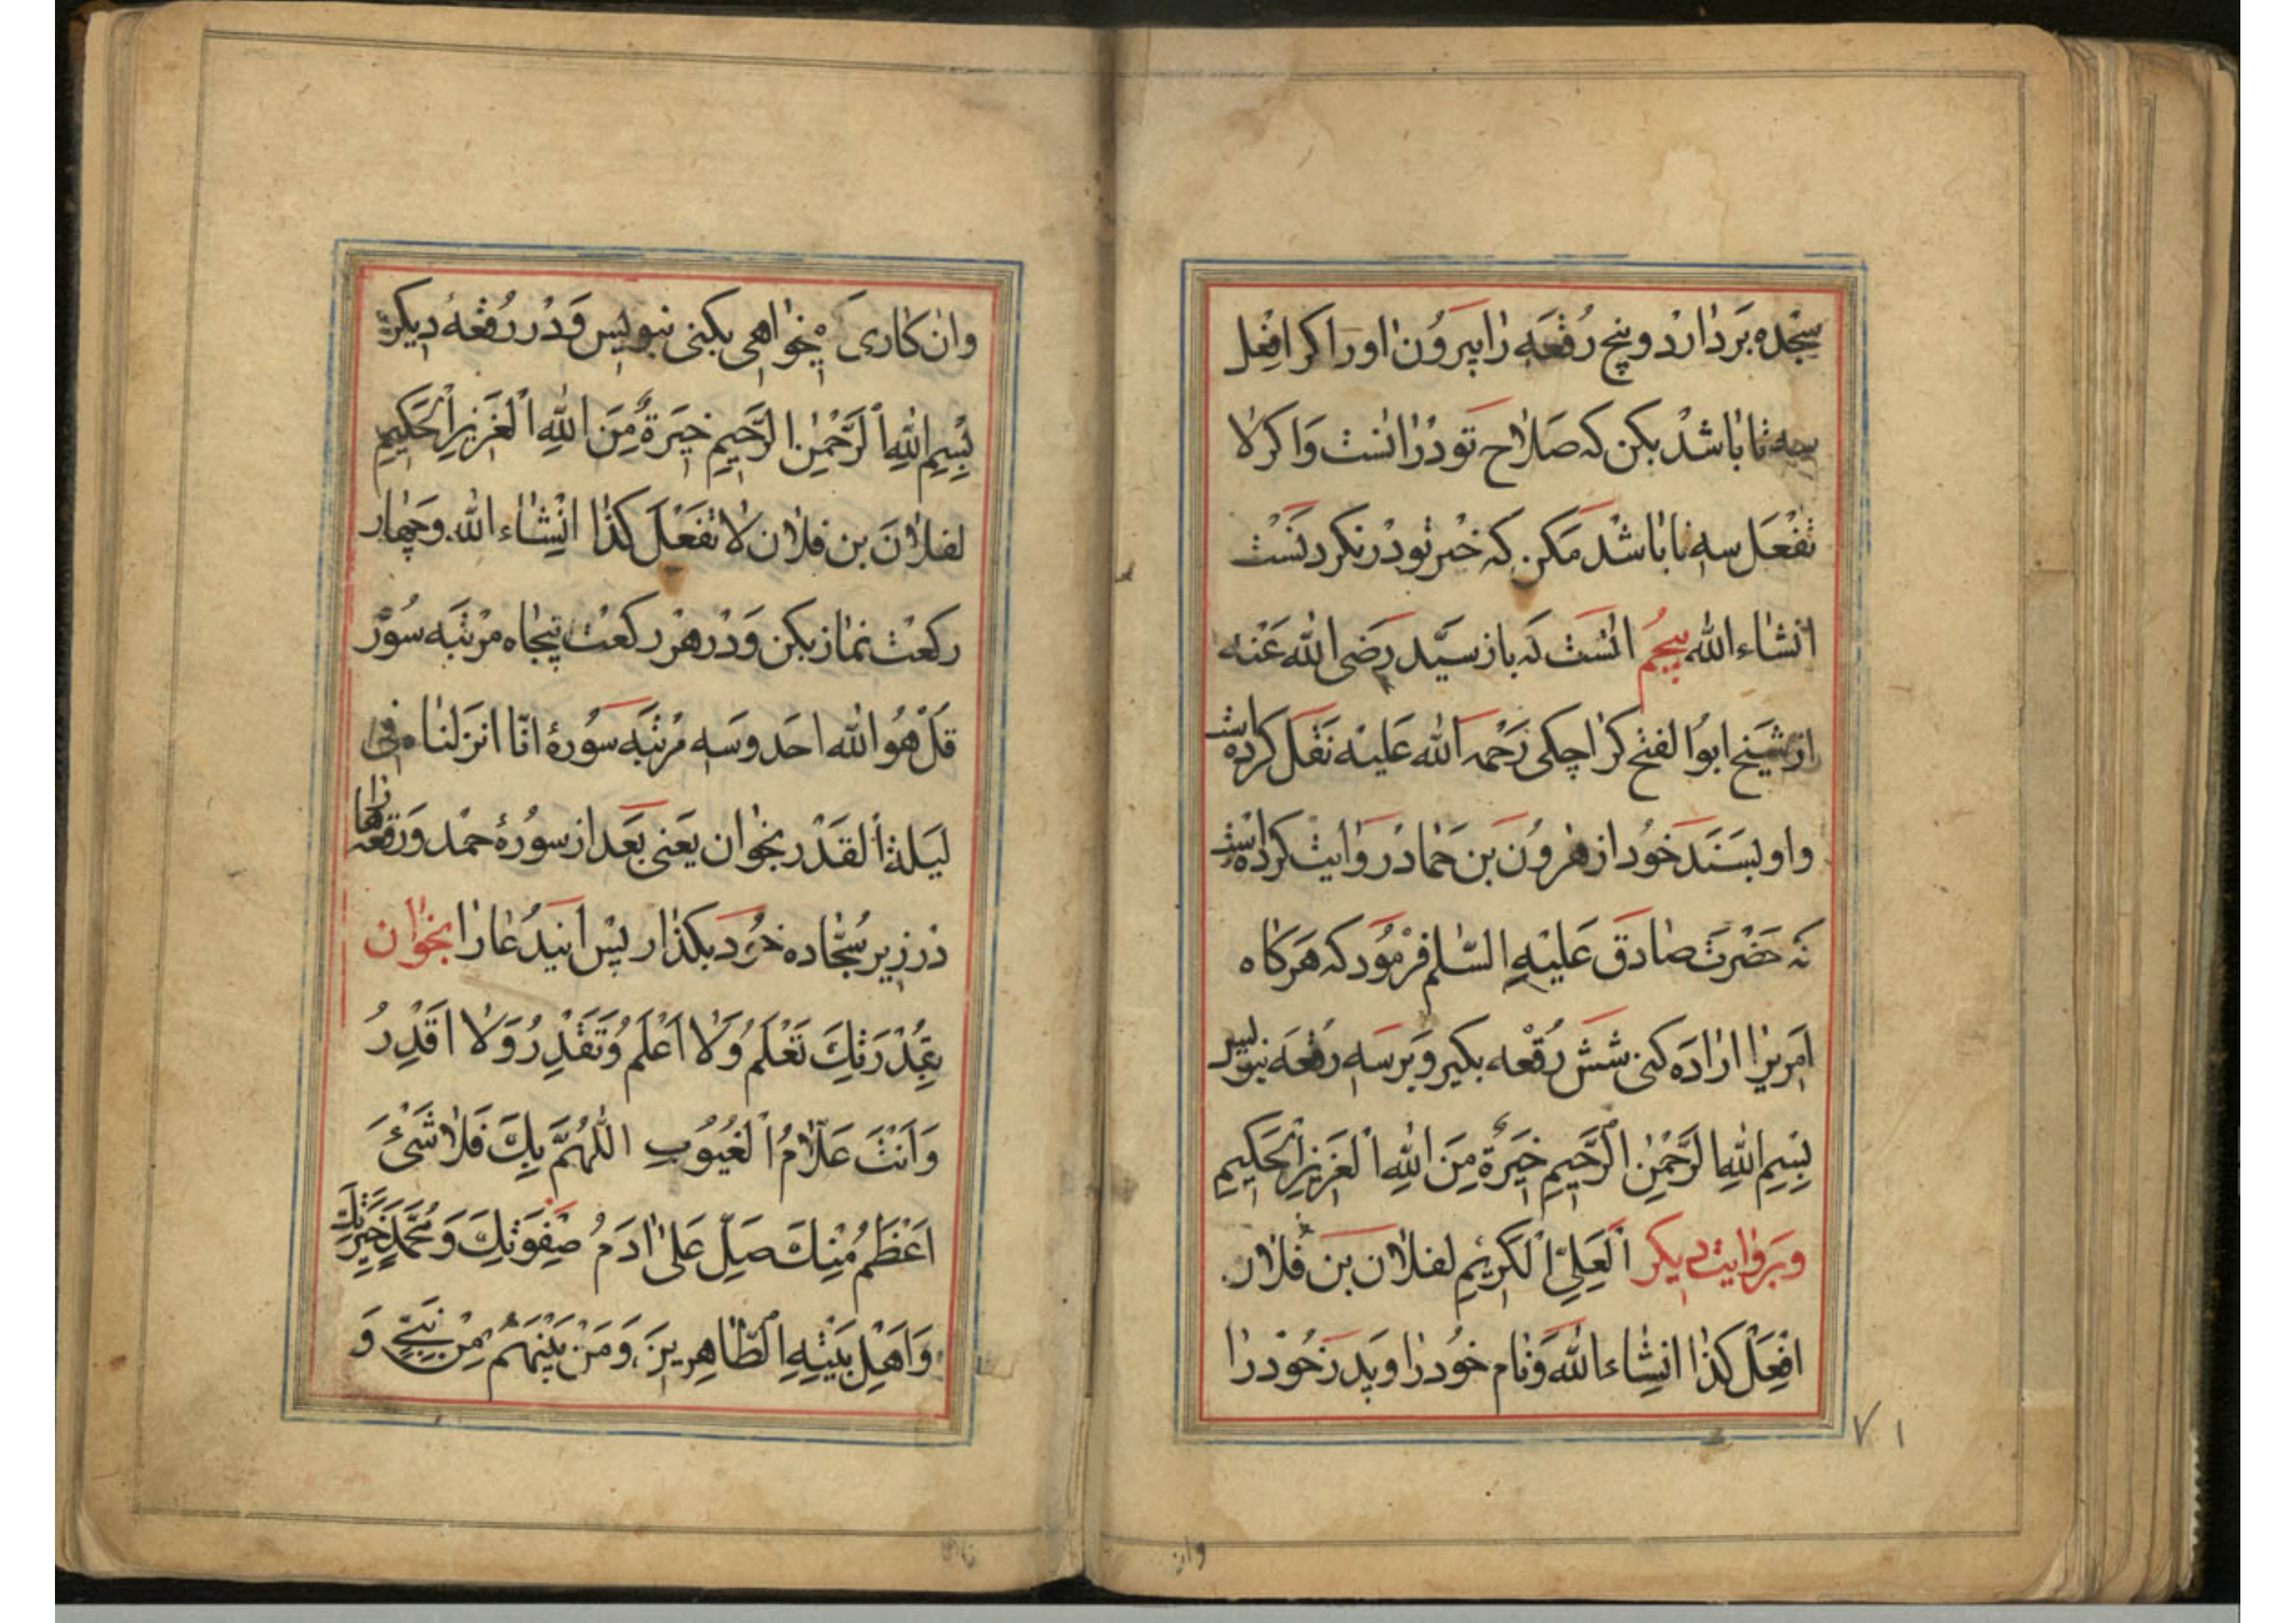 سجده بردارد و پنج رقعه را بیرون اور اکر افعل
سه تا باشد بکن که صلاح تو در انست و اکر لا
تفعل سه تا باشد مکن که خیر تو در نکردنست
انشاء الله پنجم انست که باز سید رضی الله عنه
از شیخ ابو الفتح کراجکی رحمه الله علیه نقل کرده است
و او بسند خود از هرون بن حماد روایت کرده است
که حضرت صادق علیه السلم فرمود که هرکاه
امریرا اراده کنی شش رقعه بکیر و بر سه رقعه بنویس
بِسْمِ اللهِ الرَّحْمٰنِ الرَّحِیمِ خِیَرَةٌ مِنَ اللهِ الْعَزِیزِ الْحَکِیمِ
و بروایت دیکر اَلْعَلِیِّ الْکَرِیمِ لفلان بن فلان
افعل کذا انشاء الله و نام خود را و پدر خود را
وان کاری که میخواهی بکنی بنویس و در رقعهٔ دیکر
بِسْمِ اللهِ الرَّحْمٰنِ الرَّحِیمِ خِیَرَةٌ مِنَ اللهِ الْعَزِیزِ الْحَکِیمِ
لفلان بن فلان لا تفعل کذا انشاء الله و چهار
رکعت نماز بکن و در هر رکعت پنجاه مرتبه سوره
قل هو الله احد و سه مرتبه سورهٔ انا انزلناه فی
لیلة القدر بخوان یعنی بعد از سورهٔ حمد و رقعها را
در زیر سجاده خود بکذار پس این دعا را بخوان
بِقُدْرَتِكَ تَعْلَمُ وَلا اَعْلَمُ وَتَقْدِرُ وَلا اَقْدِرُ
وَاَنْتَ عَلّامُ الْغُیُوبِ اللّٰهُمَّ بِكَ فَلا شَیْئَ
اَعْظَمُ مِنْكَ صَلِّ عَلیٰ ادَمَ صَفِوَتِكَ وَمُحَمَّدٍ خِیَرَتِكَ
وَاَهْلِ بَیْتِهِ الطّاهِرِینَ وَمَنْ بَیْنَهُمْ مِنْ نَبِیٍّ وَ
٧١
وان